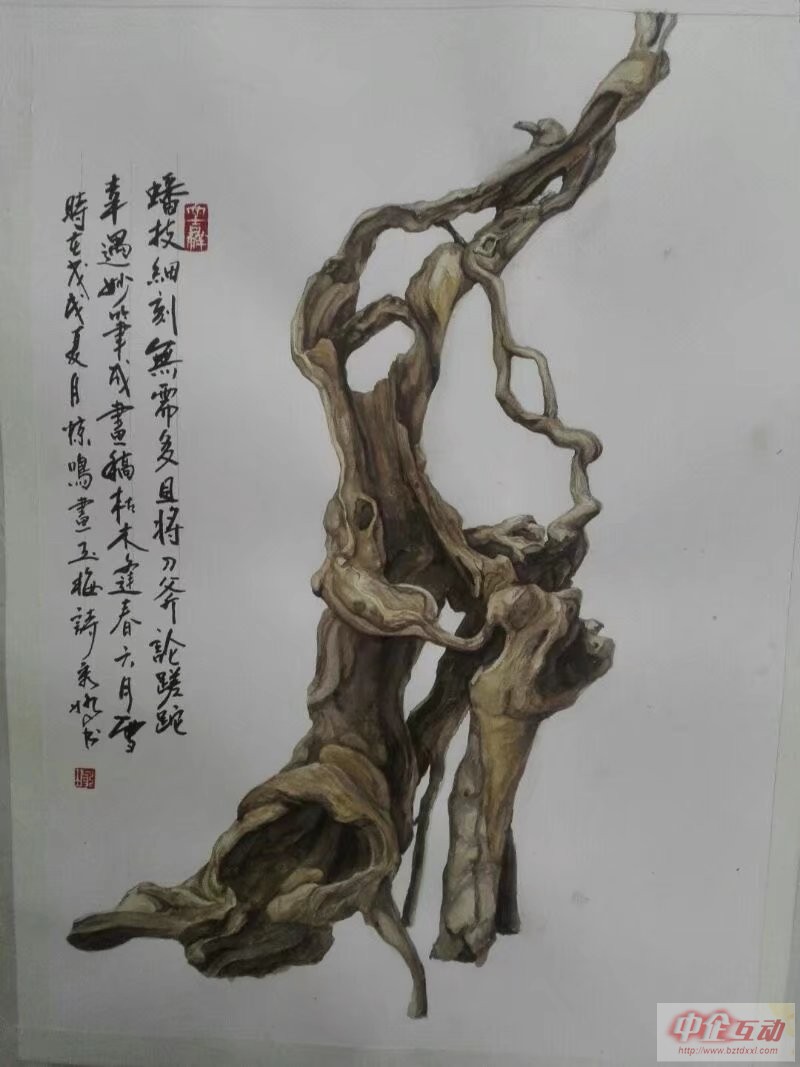 蟠枝細刻無需多且將刀斧論蹉跎
幸遇妙筆成畫稿枯木逢春六月雪
時在戊戌夏月惊鳴畫玉梅詩
中企互动
http://www.bztdxxl.com